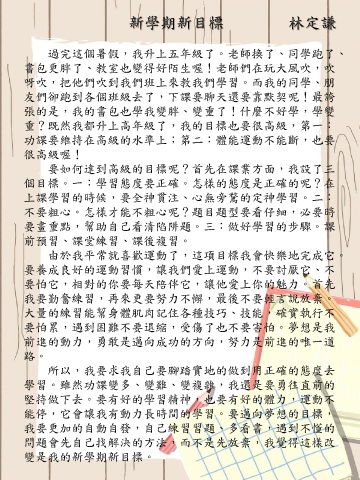 新學期新目標　　林定謙
過完這個暑假，我升上五年級了。老師換了、同學跑了、
書包更胖了、教室也變得好陌生喔！老師們在玩大風吹，吹
呀吹，把他們吹到我們班上來教我們學習。而我的同學、朋
友們卻跑到各個班級去了，下課要聊天還要靠默契呢！最誇
張的是，我的書包也學我變胖、變重了！什麼不好學，學變
重？既然我都升上高年級了，我的目標也要很高級，第一：
功課要維持在高級的水準上；第二：體能運動不能斷，也要
很高級喔！
要如何達到高級的目標呢？首先在課業方面，我設了三
個目標。一：學習態度要正確。怎樣的態度是正確的呢？在
上課學習的時候，要全神貫注、心無旁騖的定神學習。二：
不要粗心。怎樣才能不粗心呢？題目題型要看仔細，必要時
要畫重點，幫助自己看清陷阱題。三：做好學習的步驟。課
前預習、課堂練習、課後複習。
由於我平常就喜歡運動了，這項目標我會快樂地完成它。
要養成良好的運動習慣，讓我們愛上運動，不要討厭它、不
要怕它，相對的你要每天陪伴它，讓他愛上你的魅力。首先
我要勤奮練習，再來更要努力不懈，最後不要輕言說放棄。
大量的練習能幫身體肌肉記住各種技巧、技能，確實執行不
要怕累，遇到困難不要退縮，受傷了也不要害怕。夢想是我
前進的動力，勇敢是邁向成功的方向，努力是前進的唯一道
路。
所以，我要求我自己要腳踏實地的做到用正確的態度去
學習。雖然功課變多、變難、變複雜，我還是要勇往直前的
堅持做下去。要有好的學習精神，也要有好的體力，運動不
能停，它會讓我有動力長時間的學習。要邁向夢想的目標，
我要更加的自動自發，自己練習習題、多看書，遇到不懂的
問題會先自己找解決的方法，而不是先放棄，我覺得這樣改
變是我的新學期新目標。